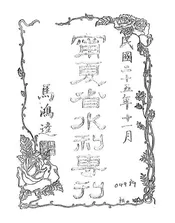 民國二十五年十一月
寧夏省水利專刊
馬鴻逵